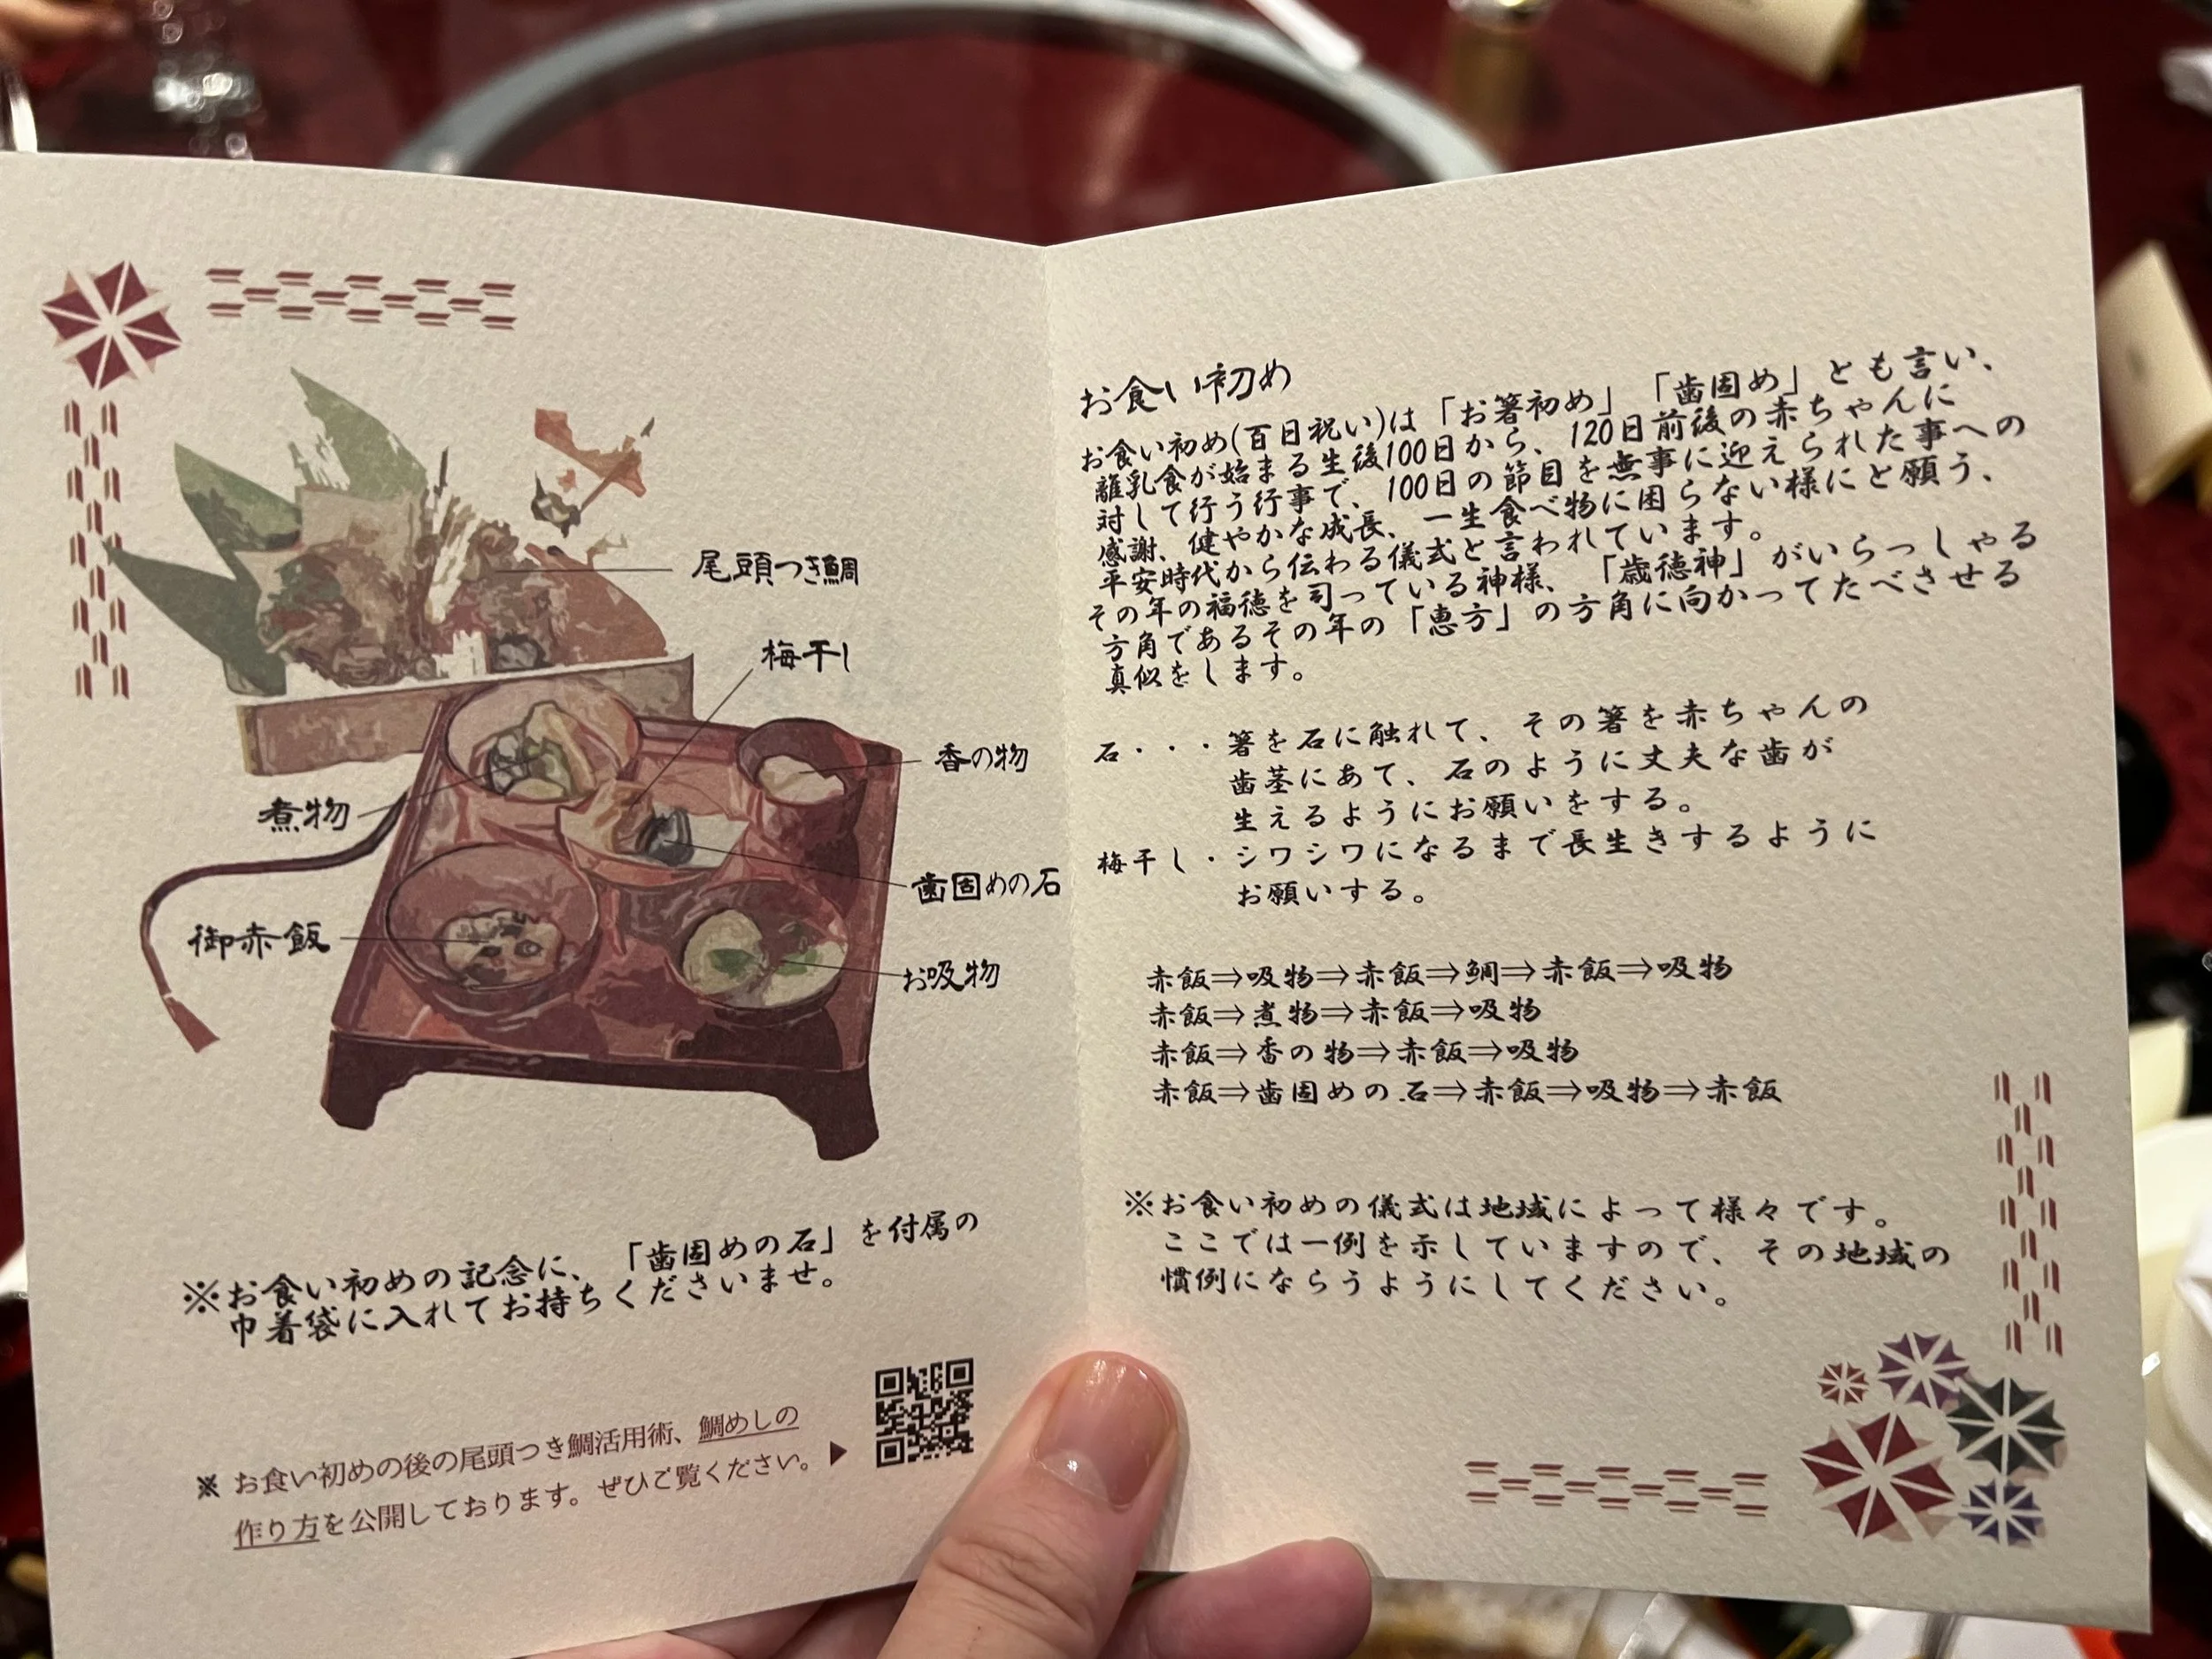 尾頭つき鯛
梅干し
香の物
煮物
歯固めの石
御赤飯
お吸物
※お食い初めの記念に、「歯固めの石」を付属の
巾着袋に入れてお持ちくださいませ。
※ お食い初めの後の尾頭つき鯛活用術、鯛めしの
作り方を公開しております。ぜひご覧ください。▶
お食い初め
お食い初め(百日祝い)は「お箸初め」「歯固め」とも言い、
離乳食が始まる生後100日から、120日前後の赤ちゃんに
対して行う行事で、100日の節目を無事に迎えられた事への
感謝、健やかな成長、一生食べ物に困らない様にと願う、
平安時代から伝わる儀式と言われています。
その年の福徳を司っている神様、「歳徳神」がいらっしゃる
方角であるその年の「恵方」の方角に向かってたべさせる
真似をします。
石・・・箸を石に触れて、その箸を赤ちゃんの
歯茎にあて、石のように丈夫な歯が
生えるようにお願いをする。
梅干し・シワシワになるまで長生きするように
お願いする。
赤飯⇒吸物⇒赤飯⇒鯛⇒赤飯⇒吸物
赤飯⇒煮物⇒赤飯⇒吸物
赤飯⇒香の物⇒赤飯⇒吸物
赤飯⇒歯固めの石⇒赤飯⇒吸物⇒赤飯
※お食い初めの儀式は地域によって様々です。
ここでは一例を示していますので、その地域の
慣例にならうようにしてください。